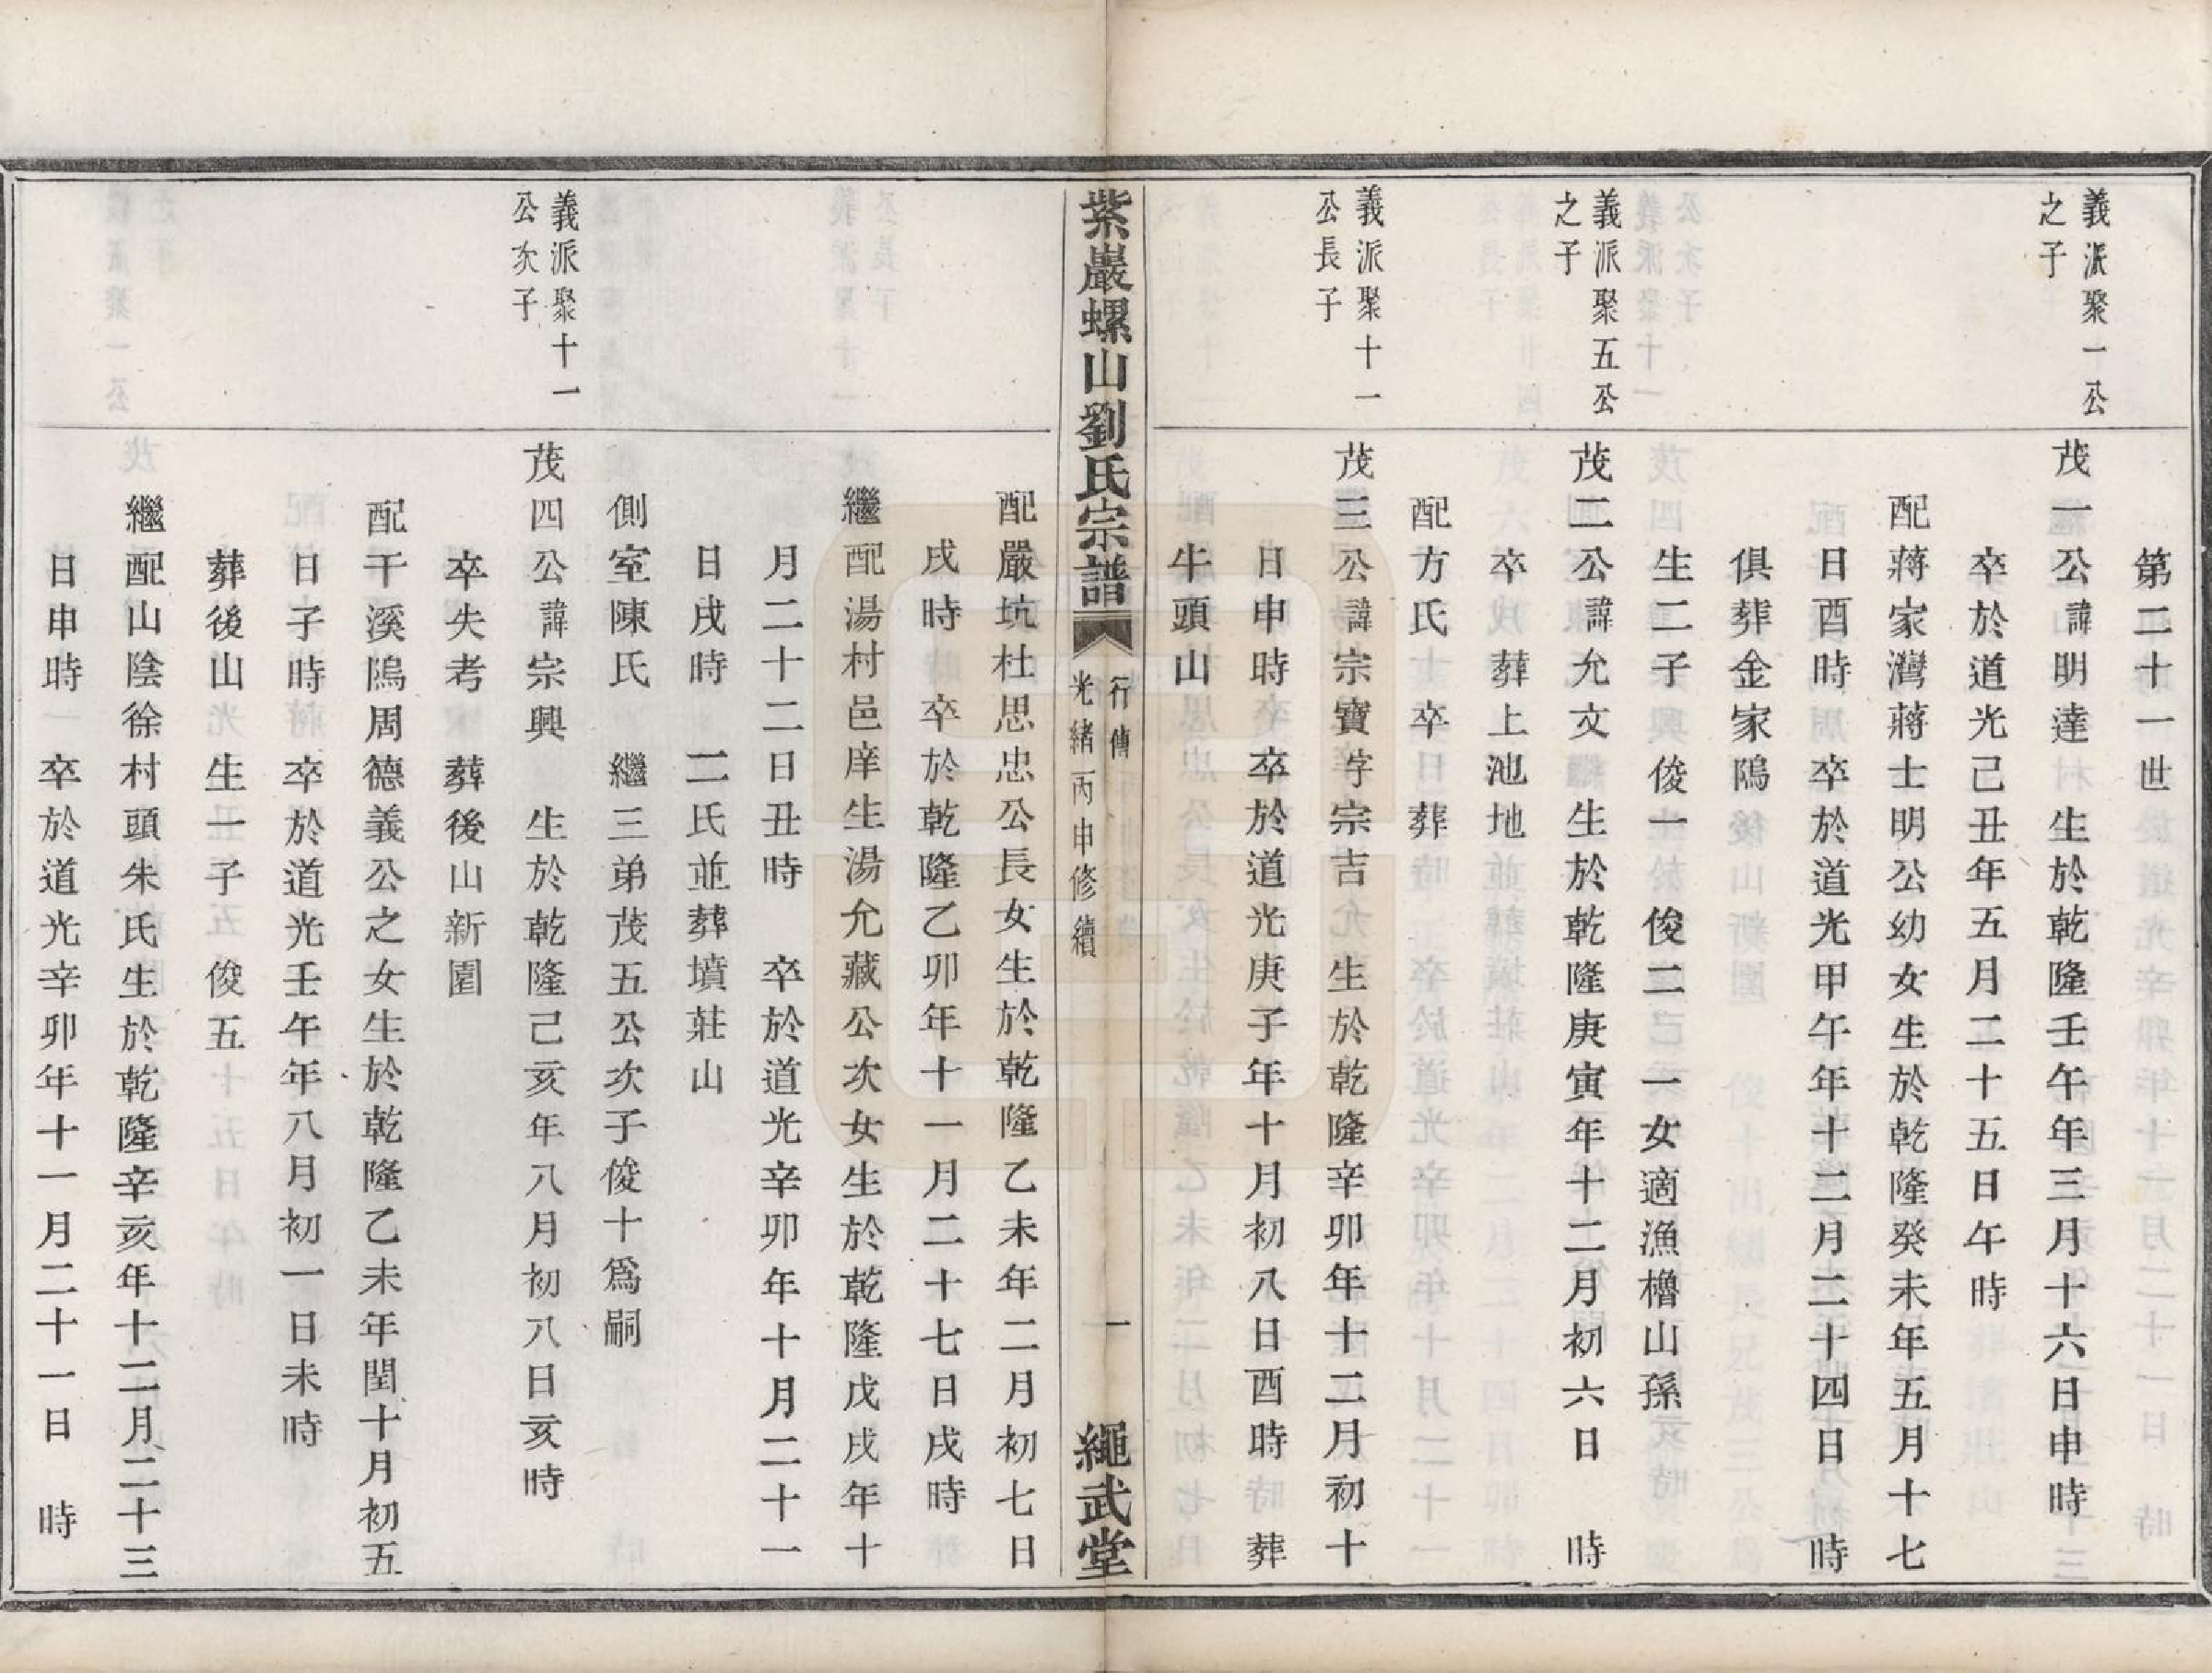 第二十一世
義派聚一公
之子
茂一公諱明達 生於乾隆壬午年三月十六日申時
卒於道光己丑年五月二十五日午時
配蔣家灣蔣士明公幼女生於乾隆癸未年五月十七
日酉時 卒於道光甲午年十二月二十四日 時
俱葬金家隖
生二子 俊一 俊二 一女適漁櫓山孫
義派聚五公
之子
茂二公諱允文 生於乾隆庚寅年十二月初六日 時
卒 葬上池地
配方氏 卒 葬
義派聚十一
公長子
茂三公諱宗寶字宗吉 生於乾隆辛卯年十二月初十
日申時 卒於道光庚子年十月初八日酉時 葬
牛頭山
紫巖螺山劉氏宗譜
行傳
光緒丙申修續
一
繩武堂
配嚴坑杜思忠公長女生於乾隆乙未年二月初七日
戌時 卒於乾隆乙卯年十一月二十七日戌時
繼配湯村邑庠生湯允藏公次女生於乾隆戊戌年十
月二十二日丑時 卒於道光辛卯年十月二十一
日戌時 二氏並葬墳莊山
側室陳氏 繼三弟茂五公次子俊十爲嗣
義派聚十一
公次子
茂四公諱宗興 生於乾隆己亥年八月初八日亥時
卒失考 葬後山新園
配干溪隖周德義公之女生於乾隆乙未年閏十月初五
日子時 卒於道光壬午年八月初一日未時
葬後山 生一子 俊五
繼配山陰徐村頭朱氏生於乾隆辛亥年十二月二十三
日申時 卒於道光辛卯年十一月二十一日 時